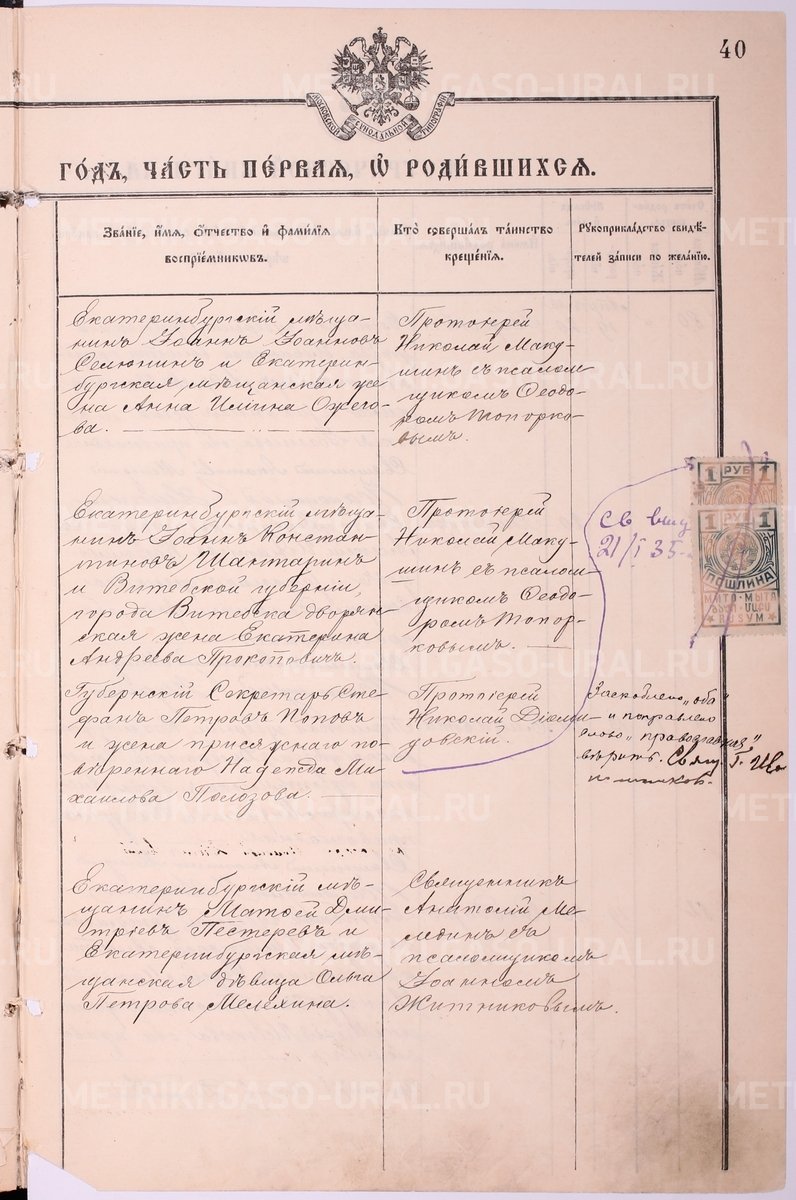 40
МОСКОВСКОЙ СИНОДАЛЬНОЙ ТИПОГРАФІИ
ГО́ДЪ, ЧА́СТЬ ПЕ́РВАЯ, Ѡ҆ РОДИ́ВШИХСЯ.
Зва́нїе, и҆́мя, ѻ҆́тчество и҆ фами́лїя
воспрїе́мникѡвъ.
Кто̀ соверша́лъ та́инство
креще́нїя.
Рꙋкоприкла́дство свидѣ́-
телей за́писи по жела́нїю.
Екатеринбургскій мѣща-
нинъ Іоаннъ Іоанновъ
Селюнинъ и Екатерин-
бургская мѣщанская же-
на Анна Иліина Ожего-
ва.
Протоіерей
Николай Маку-
шинъ съ псалом-
щикомъ Ѳеодо-
ромъ Топорко-
вымъ.
Екатеринбургскій мѣща-
нинъ Іоаннъ Констан-
тиновъ Шантаринъ
и Витебской губерніи,
города Витебска дворян-
ская жена Екатерина
Андреева Прокоповичъ.
Протоіерей
Николай Маку-
шинъ съ псалом-
щикомъ Ѳеодо-
ромъ Топор-
ковымъ.
Св выд
21/I 35
1 РУБ 1
1 РУБ 1
ПОШЛИНА
МИТО · МЫТА
RUSUM
Губернскій Секретарь Сте-
фанъ Петровъ Поповъ
и жена присяжнаго по-
вѣреннаго Надежда Ми-
хаилова Полозова.
Протоіерей
Николай Діоми-
довскій.
Заскоблено „оба"
и поправлено
слово „
вѣрить. Свящ. І.
Екатеринбургскій мѣ-
щанинъ Матѳей Дми-
тріевъ Пестеревъ и
Екатеринбургская мѣ-
щанская дѣвица Ольга
Петрова Мелехина.
Священникъ
Анатолій Ме-
лединъ съ
псаломщикомъ
Іоанномъ
Житниковымъ.
METRIKI.GASO-URAL.RU